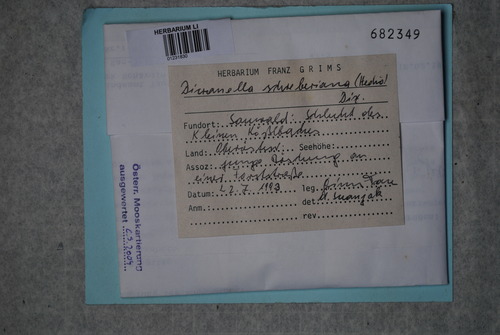 HERBARIUM LI
01231930
682349
HERBARIUM FRANZ GRIMS
Dicranella schreberiana (Hedw.)
Dix.
Fundort: Sauwald: Schlucht des
Kleinen Kößlbaches
Land: Oberösterr. Seehöhe:
Assoz: junge Böschung an
einer Forststraße
Datum: 22.7.1983 leg. Grims Franz
Anm.: det.
rev.
Österr. Mooskartierung
ausgewertet